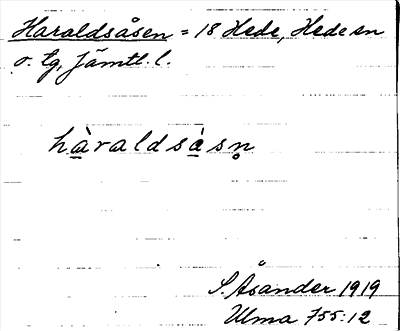 Haraldsåsen = 18 Hede, Hede sn
o. tg, Jämtl. l.
hàraldsàsn̥
S. Åsander 1919
Ulma 755:12